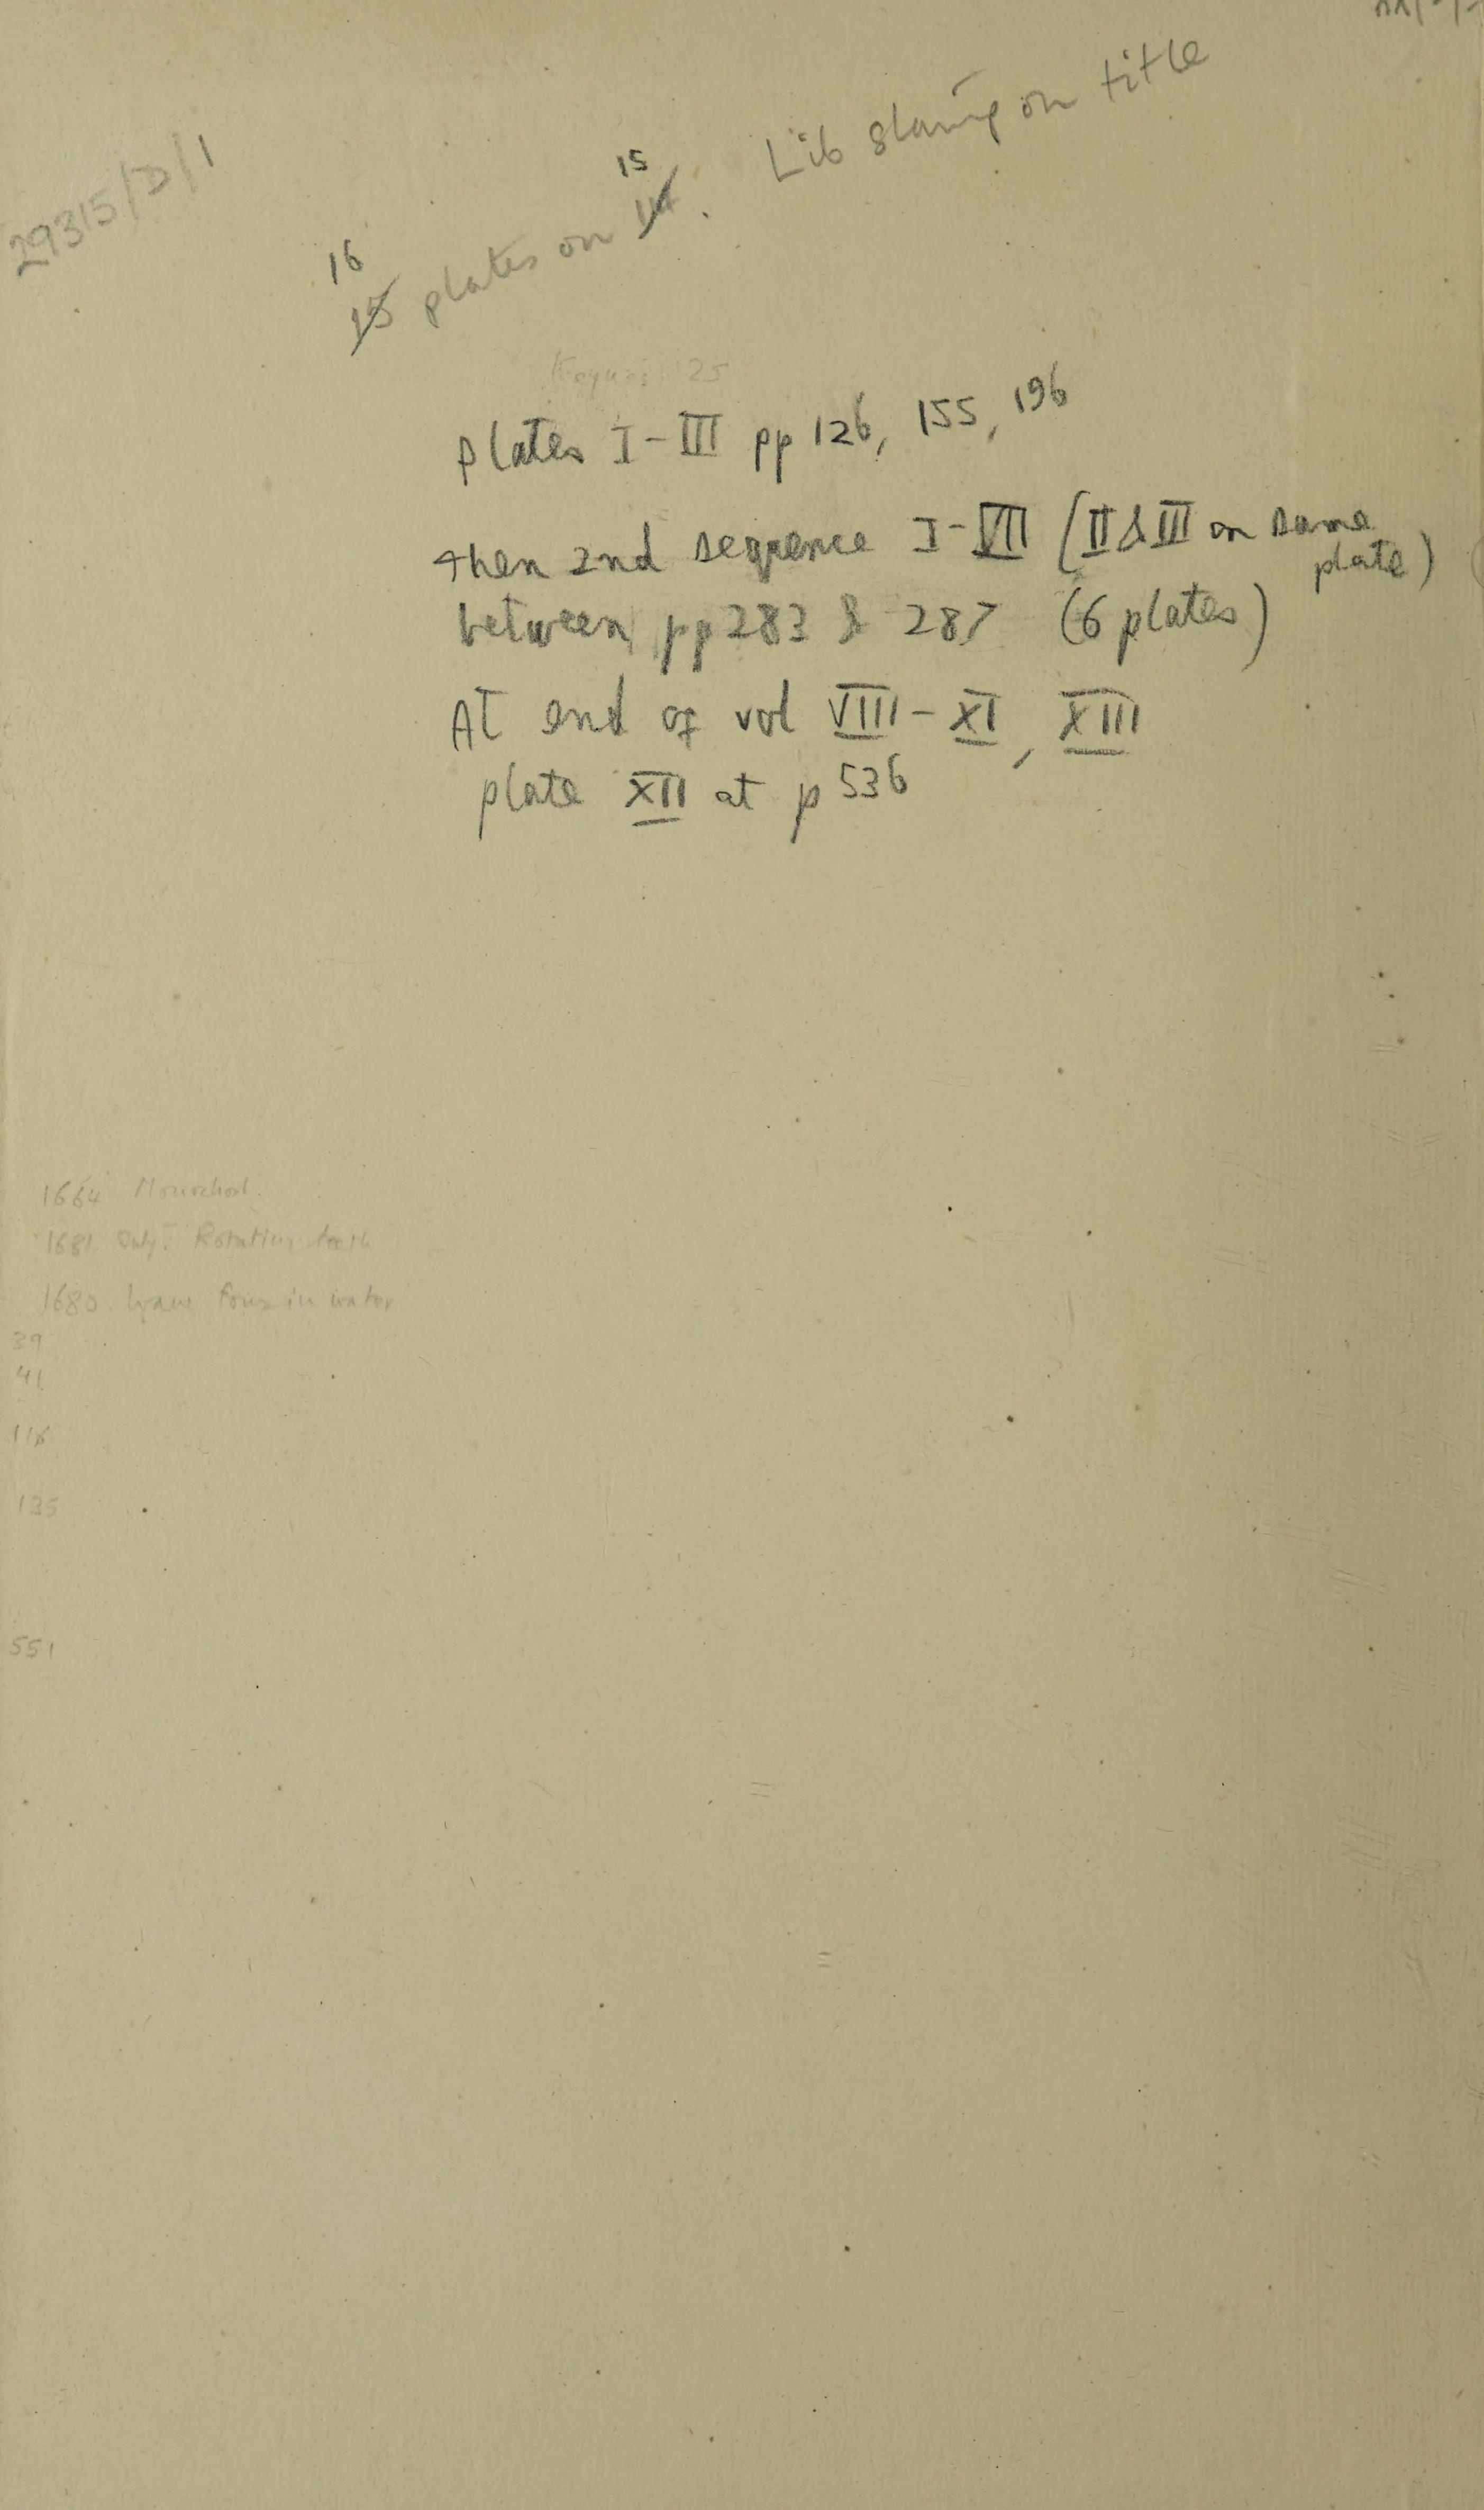 29315/D/1
16 15 plates on 15 14. Lib stamp on title
plates I-III pp 126, 155, 196
then 2nd sequence I-VII (II & III on same plate)
between pp 283 & 287 (6 plates)
At end of vol VIII - XI, XIII
plate XII at p 536
1664
1681 only. Rotating teeth
1680 wave in water
39
41
116
135
551